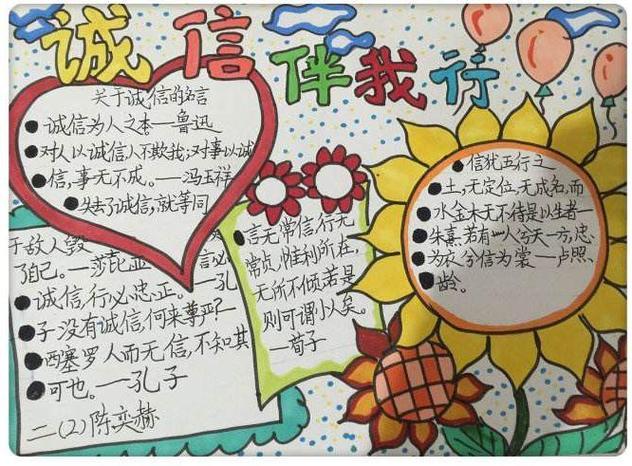 诚信伴我行
关于诚信的名言
诚信为人之本——鲁迅
对人以诚信人不欺我；对事以诚
信，事无不成。——冯玉祥
失去了诚信，就等同
于敌人毁
了自己。——莎
必
诚信，行必忠正。——孔
子 没有诚信，何来尊严？——
西塞罗 人而无信，不知其
可也。——孔子
二（2）陈奕赫
言无常信，行无
常贞，惟利所在，
无所不倾若是
则可谓小人矣。
——荀子
信犹五行之
土，无定位，无成名，而
水金木无不待是以生者—
朱熹 若有一人兮天一方，忠
为衣兮信为裳—卢照
龄。